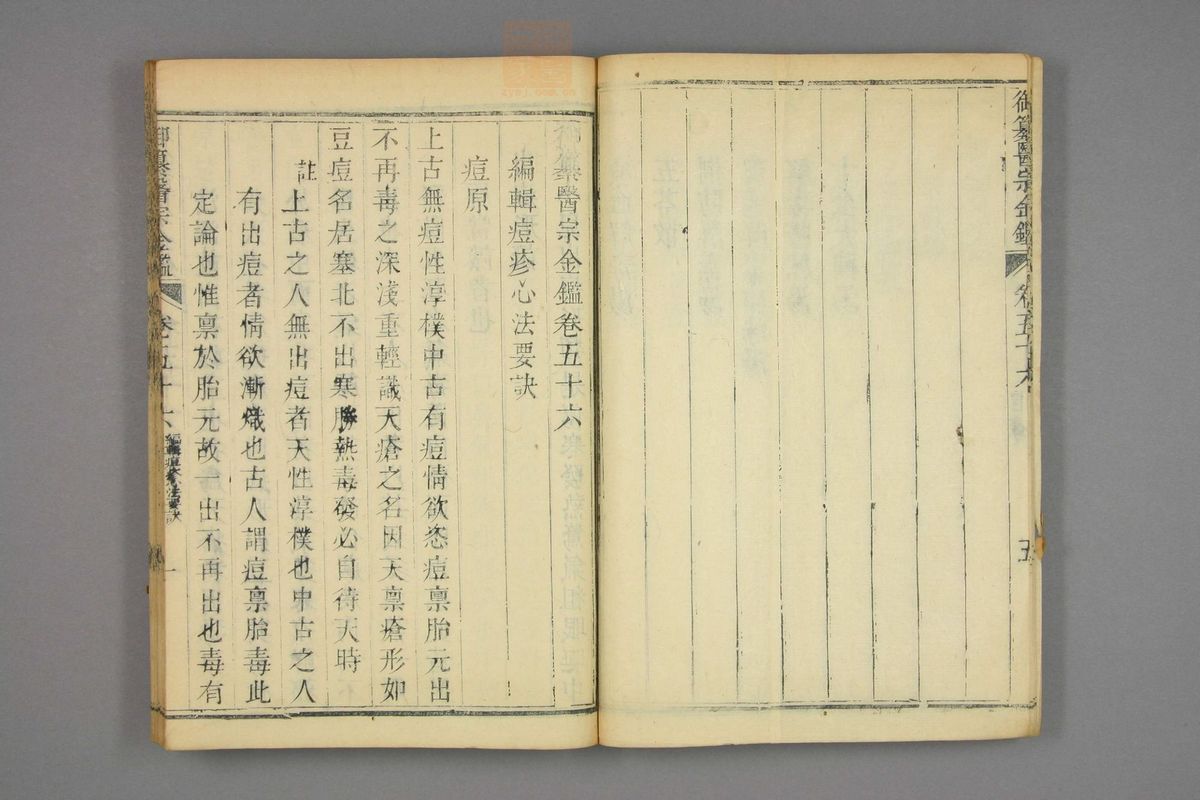 御纂醫宗金鑑 卷五十六 五
御纂醫宗金鑑卷五十六
編輯痘疹心法要訣
痘原
上古無痘性淳樸中古有痘情欲恣痘禀胎元出
不再毒之深淺重輕識天瘡之名因天禀瘡形如
豆痘名居塞北不出寒勝熱毒發必自待天時
註上古之人無出痘者天性淳樸也中古之人
有出痘者情欲漸熾也古人謂痘禀胎毒此
定論也惟禀於胎元故一出不再出也毒有
御纂醫宗金鑑 卷五十六 編輯痘疹心法要訣 一